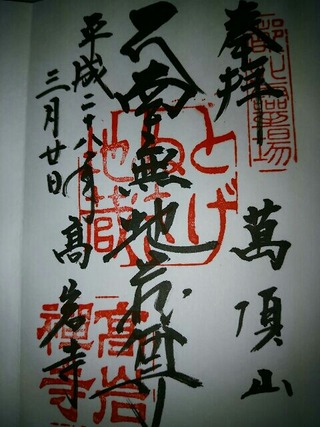 奉拝
萬頂山
南無地蔵尊
とげぬき地蔵
平成二十八年
三月廿日
高岩寺
高岩禅寺